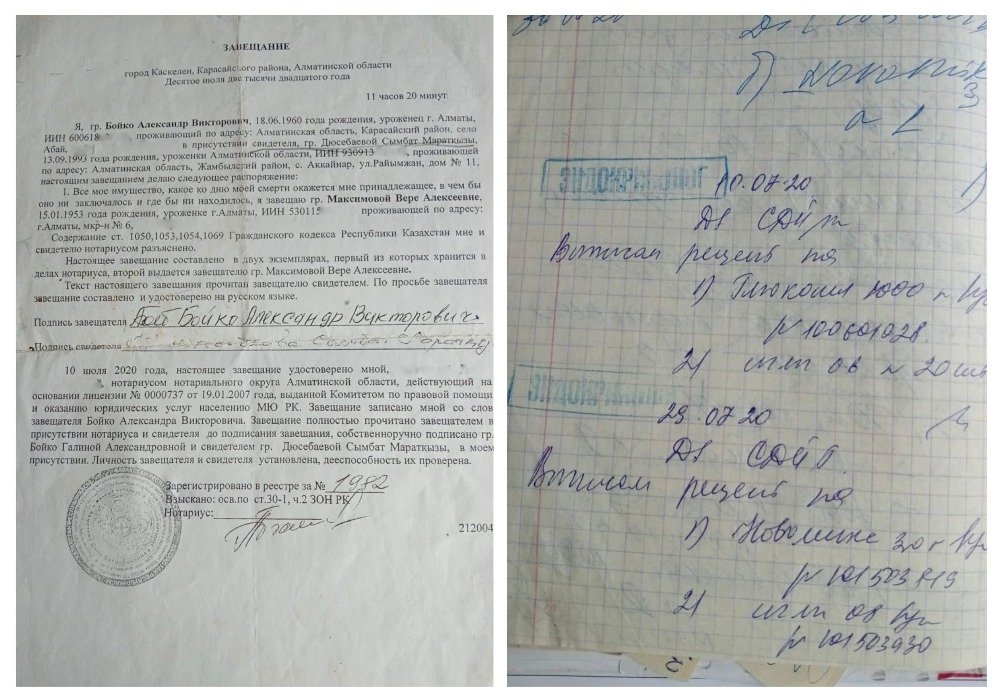 ЗАВЕЩАНИЕ
город Каскелен, Карасайского района, Алматинской области
Десятое июля две тысячи двадцатого года
11 часов 20 минут
Я, гр. Бойко Александр Викторович, 18.06.1960 года рождения, уроженец г. Алматы,
ИИН 600618 проживающий по адресу: Алматинская область, Карасайский район, село
Абай, в присутствии свидетеля, гр. Дюсебаевой Сымбат Мараткызы,
13.09.1993 года рождения, уроженки Алматинской области, ИИН 930913 , проживающей
по адресу: Алматинская область, Жамбылский район, с. Аккайнар, ул.Райымжан, дом № 11,
настоящим завещанием делаю следующее распоряжение:
1. Все мое имущество, какое ко дню моей смерти окажется мне принадлежащее, в чем бы
оно ни заключалось и где бы ни находилось, я завещаю гр. Максимовой Вере Алексеевне,
15.01.1953 года рождения, уроженке г.Алматы, ИИН 530115 проживающей по адресу:
г.Алматы, мкр-н № 6,
Содержание ст. 1050,1053,1054,1069 Гражданского кодекса Республики Казахстан мне и
свидетелю нотариусом разъяснено.
Настоящее завещание составлено в двух экземплярах, первый из которых хранится в
делах нотариуса, второй выдается завещателю гр. Максимовой Вере Алексеевне.
Текст настоящего завещания прочитан завещателю свидетелем. По просьбе завещателя
завещание составлено и удостоверено на русском языке.
Подпись завещателя Бойко Александр Викторович
Подпись свидетеля
10 июля 2020 года, настоящее завещание удостоверено мной,
, нотариусом нотариального округа Алматинской области, действующий на
основании лицензии № 0000737 от 19.01.2007 года, выданной Комитетом по правовой помощи
и оказанию юридических услуг населению МЮ РК. Завещание записано мной со слов
завещателя Бойко Александра Викторовича. Завещание полностью прочитано завещателем в
присутствии нотариуса и свидетеля до подписания завещания, собственноручно подписано гр.
Бойко Галиной Александровной и свидетелем гр. Дюсебаевой Сымбат Мараткызы, в моем
присутствии. Личность завещателя и свидетеля установлена, дееспособность их проверена.
Зарегистрировано в реестре за № 1982
Взыскано: осв.по ст.30-1, ч.2 ЗОН РК
Нотариус:
212004
10.07.20
Ds СД
Выписан рецепт на
1) 1000
р 100601028
2) иглы 08 n 20
29.07.20
Ds СД
Выписан рецепт на
1) Новомикс 30
р 101503919
2) иглы 08
р 101503930